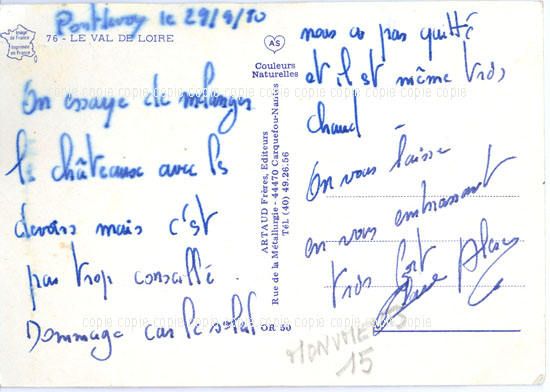 Pontlevoy le 29/8/80
Image de France
Imprimée en France
76 - LE VAL DE LOIRE
On essaye de mélanger
les châteaux avec les
devoirs mais c'est
pas trop conseillé.
Dommage car le soleil
AS
Couleurs
Naturelles
ARTAUD Frères, Editeurs
Rue de la Métallurgie - 44470 Carquefou-Nantes
Tél. (40) 49.26.56
OR 50
nous a pas quitté
et il est même très
chaud -
On vous laisse
en vous embrassant
très fort
15
copie copie copie copie copie copie copie copie copie copie